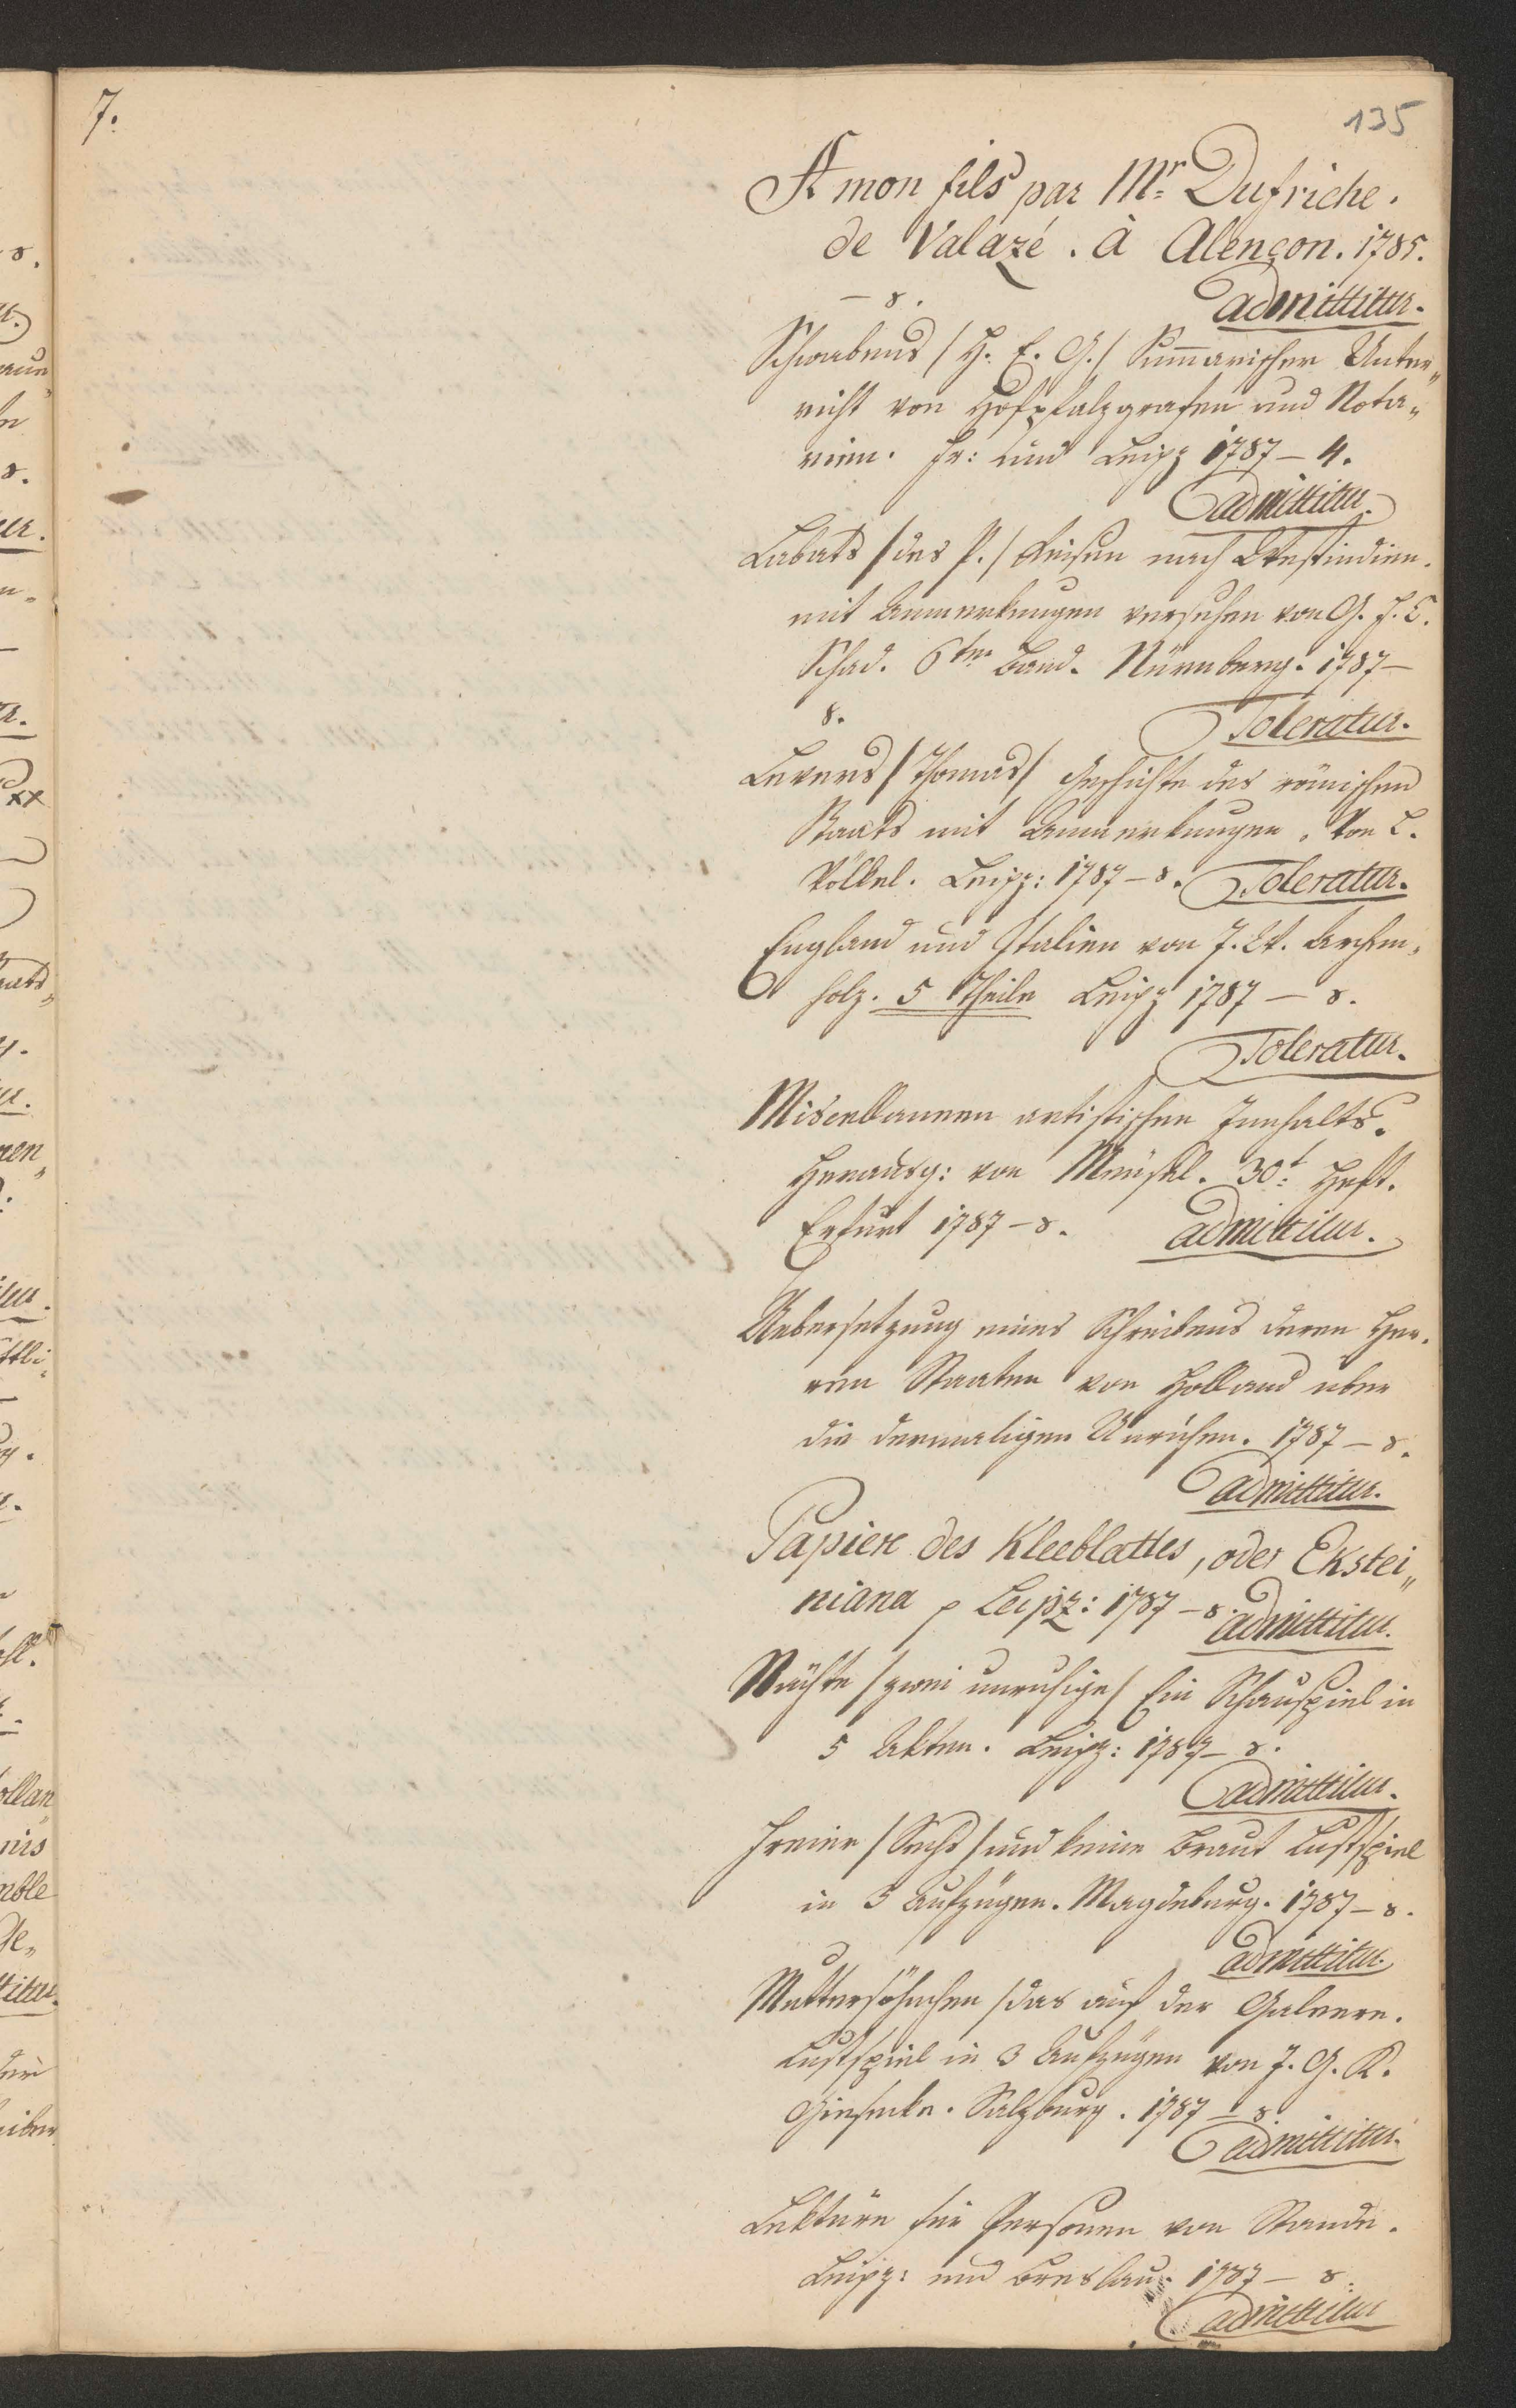 7.
135
A mon fils par Mr. Dufriche.
de Valazé. à Alençon. 1785.
– 8. admittitur.
Schwabens /H. E. G./ Sum̄arischer Unter„
richt von Hofpfalzgrafen und Nota„
rien. Fr: und Leipz 1787 – 4.
admittitur.
Labats /des P./ Reisen nach Westindien.
mit Anmerkungen versehen von G. F. C.
Schad. 6ter Band. Nürnberg. 1787 –
8. Toleratur.
Levers /Thomas/ Geschichte des römischen
Staats mit Anmerkungen. Von L.
Völkel. Leipz: 1787 – 8. Toleratur.
England und Italien von J. W. Archen„
holz. 5 Theile Leipz 1787 – 8.
Toleratur.
Misenllaneen artistischen Innhalts.
Herausg: von Meusel. 30t. Heft.
Erfurt 1787 – 8. admittitur.
Uebersetzung eines Schreibens deren Her„
ren Staaten von Holland uber
die dermaligen Unruhen. 1787 – 8.
admittitur.
Papiere des Kleeblattes, oder Ekstei„
niana p Leipz: 1787 – 8. admittitur.
Nächte /zwei unruhige/ Ein Schauspiel in
5 Akten. Leipz: 1787 – 8.
admittitur.
Freier /Sechs/ und keine Braut Lustspiel
in 5 Aufzügen. Magdeburg. 1787 – 8.
admittitur.
Muttersöhnchen /das auf der Galeere.
Lustspiel in 3 Aufzügen von J. G. K.
Giesecke. Salzburg. 1787 – 8.
admittitur.
Lektüre für Personen von Stande.
Leipz: und Breslau. 1787 – 8.
admittitur